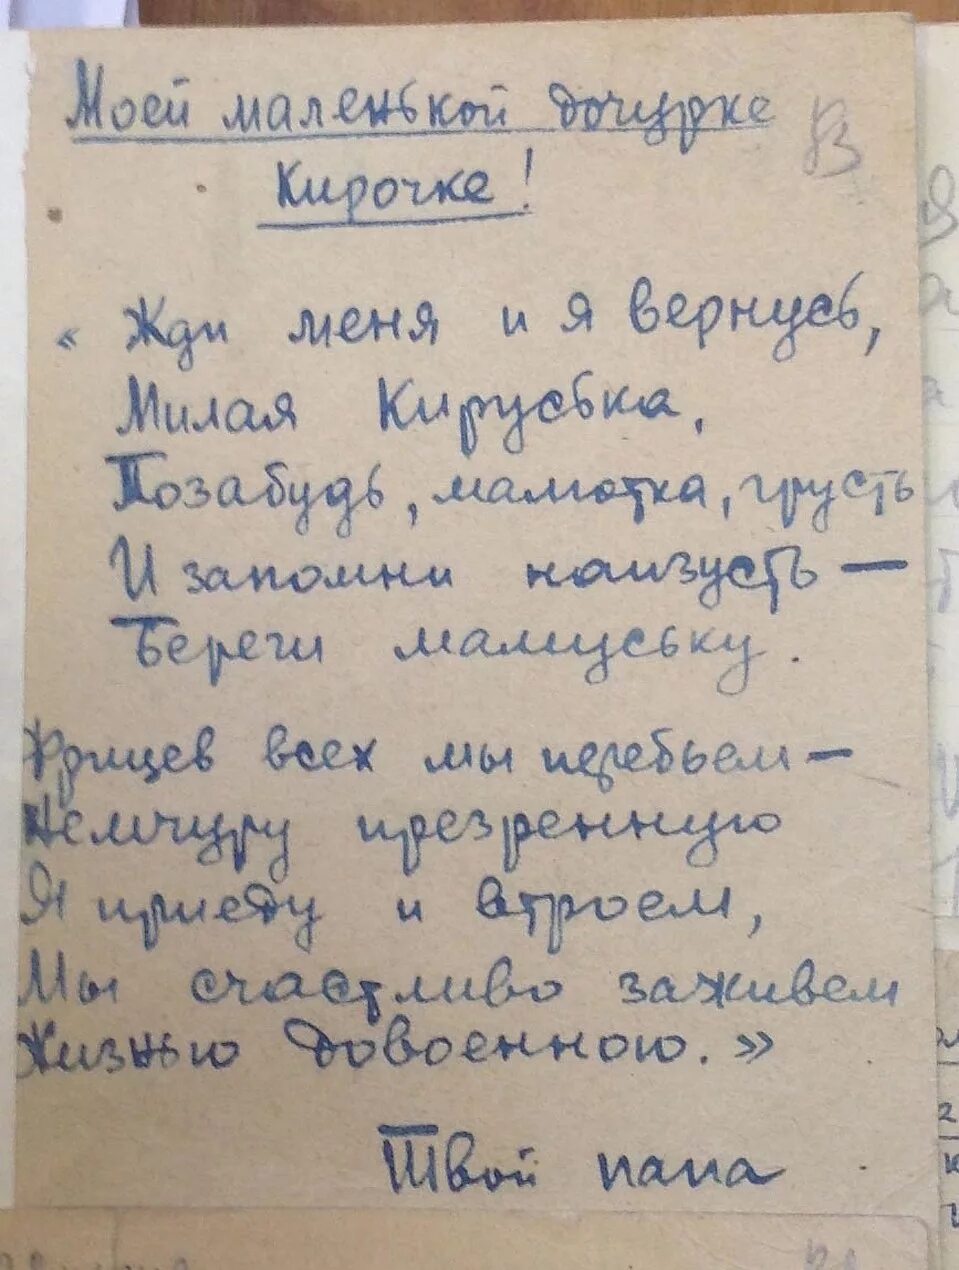 Моей маленькой дочурке
Кирочке!
« Жди меня и я вернусь,
Милая Кируська,
Позабудь, мамотка, грусть
И запомни наизусть —
Береги мамуську.
Фрицев всех мы перебьем —
Немчуру презренную
Я приеду и втроем,
Мы счастливо заживем
Жизнью довоенною.»
Твой папа